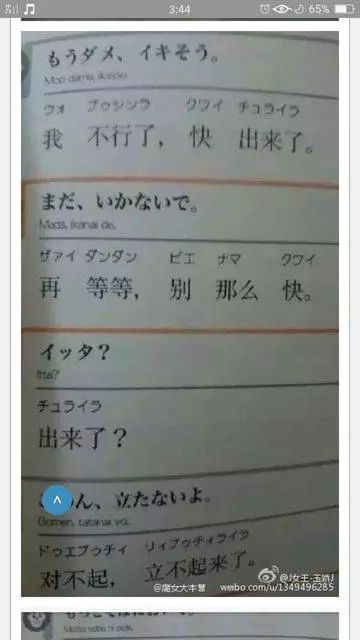 3:44
65%
もうダメ、イキそう。
Moo dame, ikisoo.
ウォ ブゥシンラ クワイ チュライラ
我 不行了, 快 出来了。
まだ、いかないで。
Mada, ikanai de.
ザァイ ダンダン ビエ ナマ クワイ
再 等等, 别 那么 快。
イッタ?
Itta?
チュライラ
出来了?
ん、立たないよ。
Gomen, tatanai yo.
ドゥエブゥチィ リィブゥチィライラ
对不起, 立不起来了。
@J女王-玉娇J
@魔女大本营 weibo.com/u/1349496285